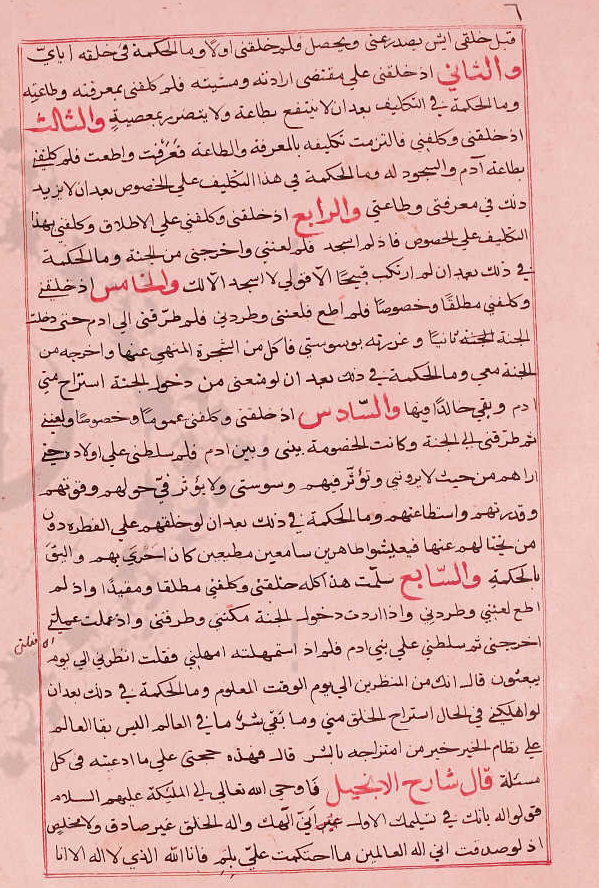 ٦
قبل خلقي ايش يصدر عني ويحصل فلم خلقني اولا وما الحكمة في خلقه اياي
والثاني اذ خلقني علي مقتضي ارادته ومشيته فلم كلفني بمعرفته وطاعته
وما الحكمة في التكليف بعد ان لا ينتفع بطاعة ولا يتضرر بمعصية والثالث
اذ خلقني وكلفني فالتزمت تكليفه بالمعرفة والطاعة فعرفت واطعت فلم كلفني
بطاعة آدم والسجود له وما الحكمة في هذا التكليف علي الخصوص بعد ان لا يزيد
ذلك في معرفتي وطاعتي والرابع اذ خلقني وكلفني علي الاطلاق وكلفني بهذا
التكليف علي الخصوص فاذ لم اسجد فلم لعنني واخرجني من الجنة وما الحكمة
في ذلك بعد ان لم ارتكب قبيحا الا قولي لا اسجد الا لك والخامس اذ خلقني
وكلفني مطلقا وخصوصا فلم اطع فلعنني وطردني فلم طرقني الي ادم حتي دخلت
الجنة ثانيا وغررته بوسوستي فاكل من الشجرة المنهي عنها واخرجه من
الجنة معي وما الحكمة في ذلك بعد ان لو منعني من دخول الجنة استراح مني
ادم وبقي خالدا فيها والسادس اذ خلقني وكلفني عموما وخصوصا ولعنني
ثم طرقني الي الجنة وكانت الخصومة بيني وبين ادم فلم سلطني علي اولاده حتي
اراهم من حيث لا يرونني وتؤثر فيهم وسوستي ولا يؤثر في حولهم وقوتهم
وقدرتهم واستطاعتهم وما الحكمة في ذلك بعد ان لو خلقهم علي الفطرة دون
من يختالهم عنها فيعيشوا طاهرين سامعين مطيعين كان احري بهم واليق
بالحكمة والسابع سلمت هذا كله خلقني وكلفني مطلقا ومقيدا واذ لم
اطع لعنني وطردني واذا اردت دخول الجنة مكنني وطرقني واذ عملت عملي
اخرجني ثم سلطني علي بني ادم فلم اذ استمهلته امهلني فقلت انظرني الي يوم
يبعثون قال انك من المنظرين الي يوم الوقت المعلوم وما الحكمة في ذلك بعد ان
لو اهلكني في الحال استراح الخلق مني وما بقي شر ما في العالم اليس بقا العالم
علي نظام الخير خير من امتزاجه بالشر قال فهذه حجتي علي ما ادعيته في كل
مسئلة قال شارح الانجيل فاوحي الله تعالي الي الملئكة عليهم السلام
قولوا له بانك في تسليمك الاول اني الهك واله الخلق غير صادق ولا مخلص
اذ لو صدقت اني اله العالمين ما احتكمت علي بلم فانا الله الذي لا اله الا انا